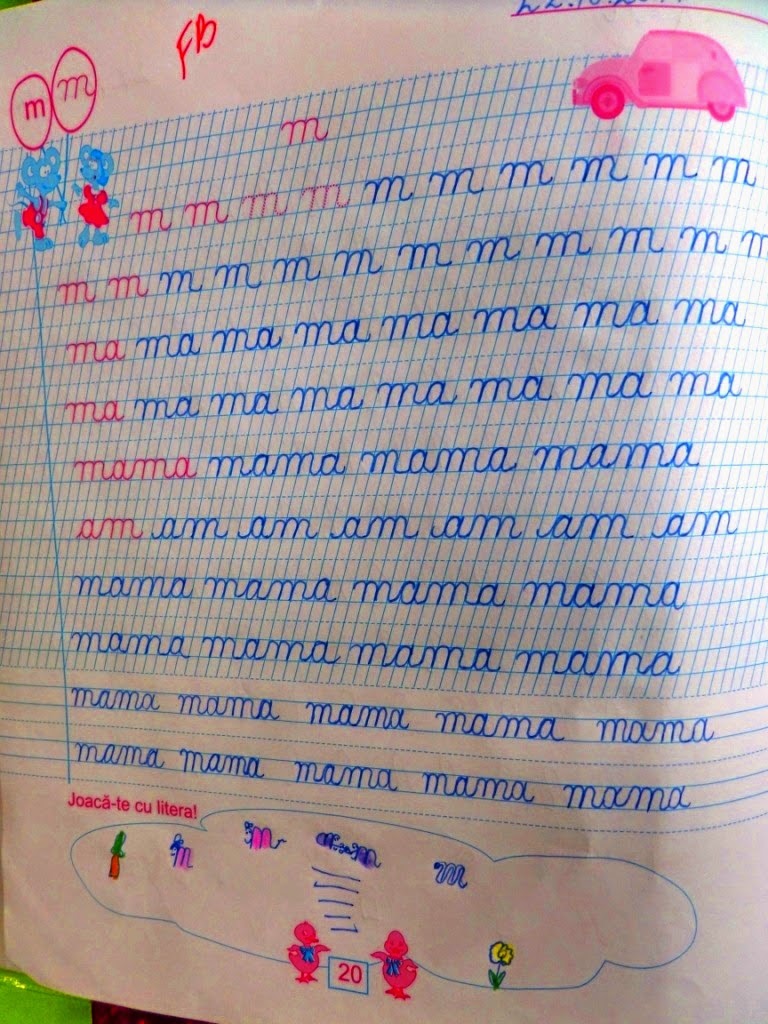 FB
m m
m
m m m m m m m m m m
m m m m m m m m m m m m
ma ma ma ma ma ma ma ma
ma ma ma ma ma ma ma ma
mama mama mama mama
am am am am am am am
mama mama mama mama
mama mama mama mama
mama mama mama mama mama
mama mama mama mama mama
Joacă-te cu litera!
m m m m
20